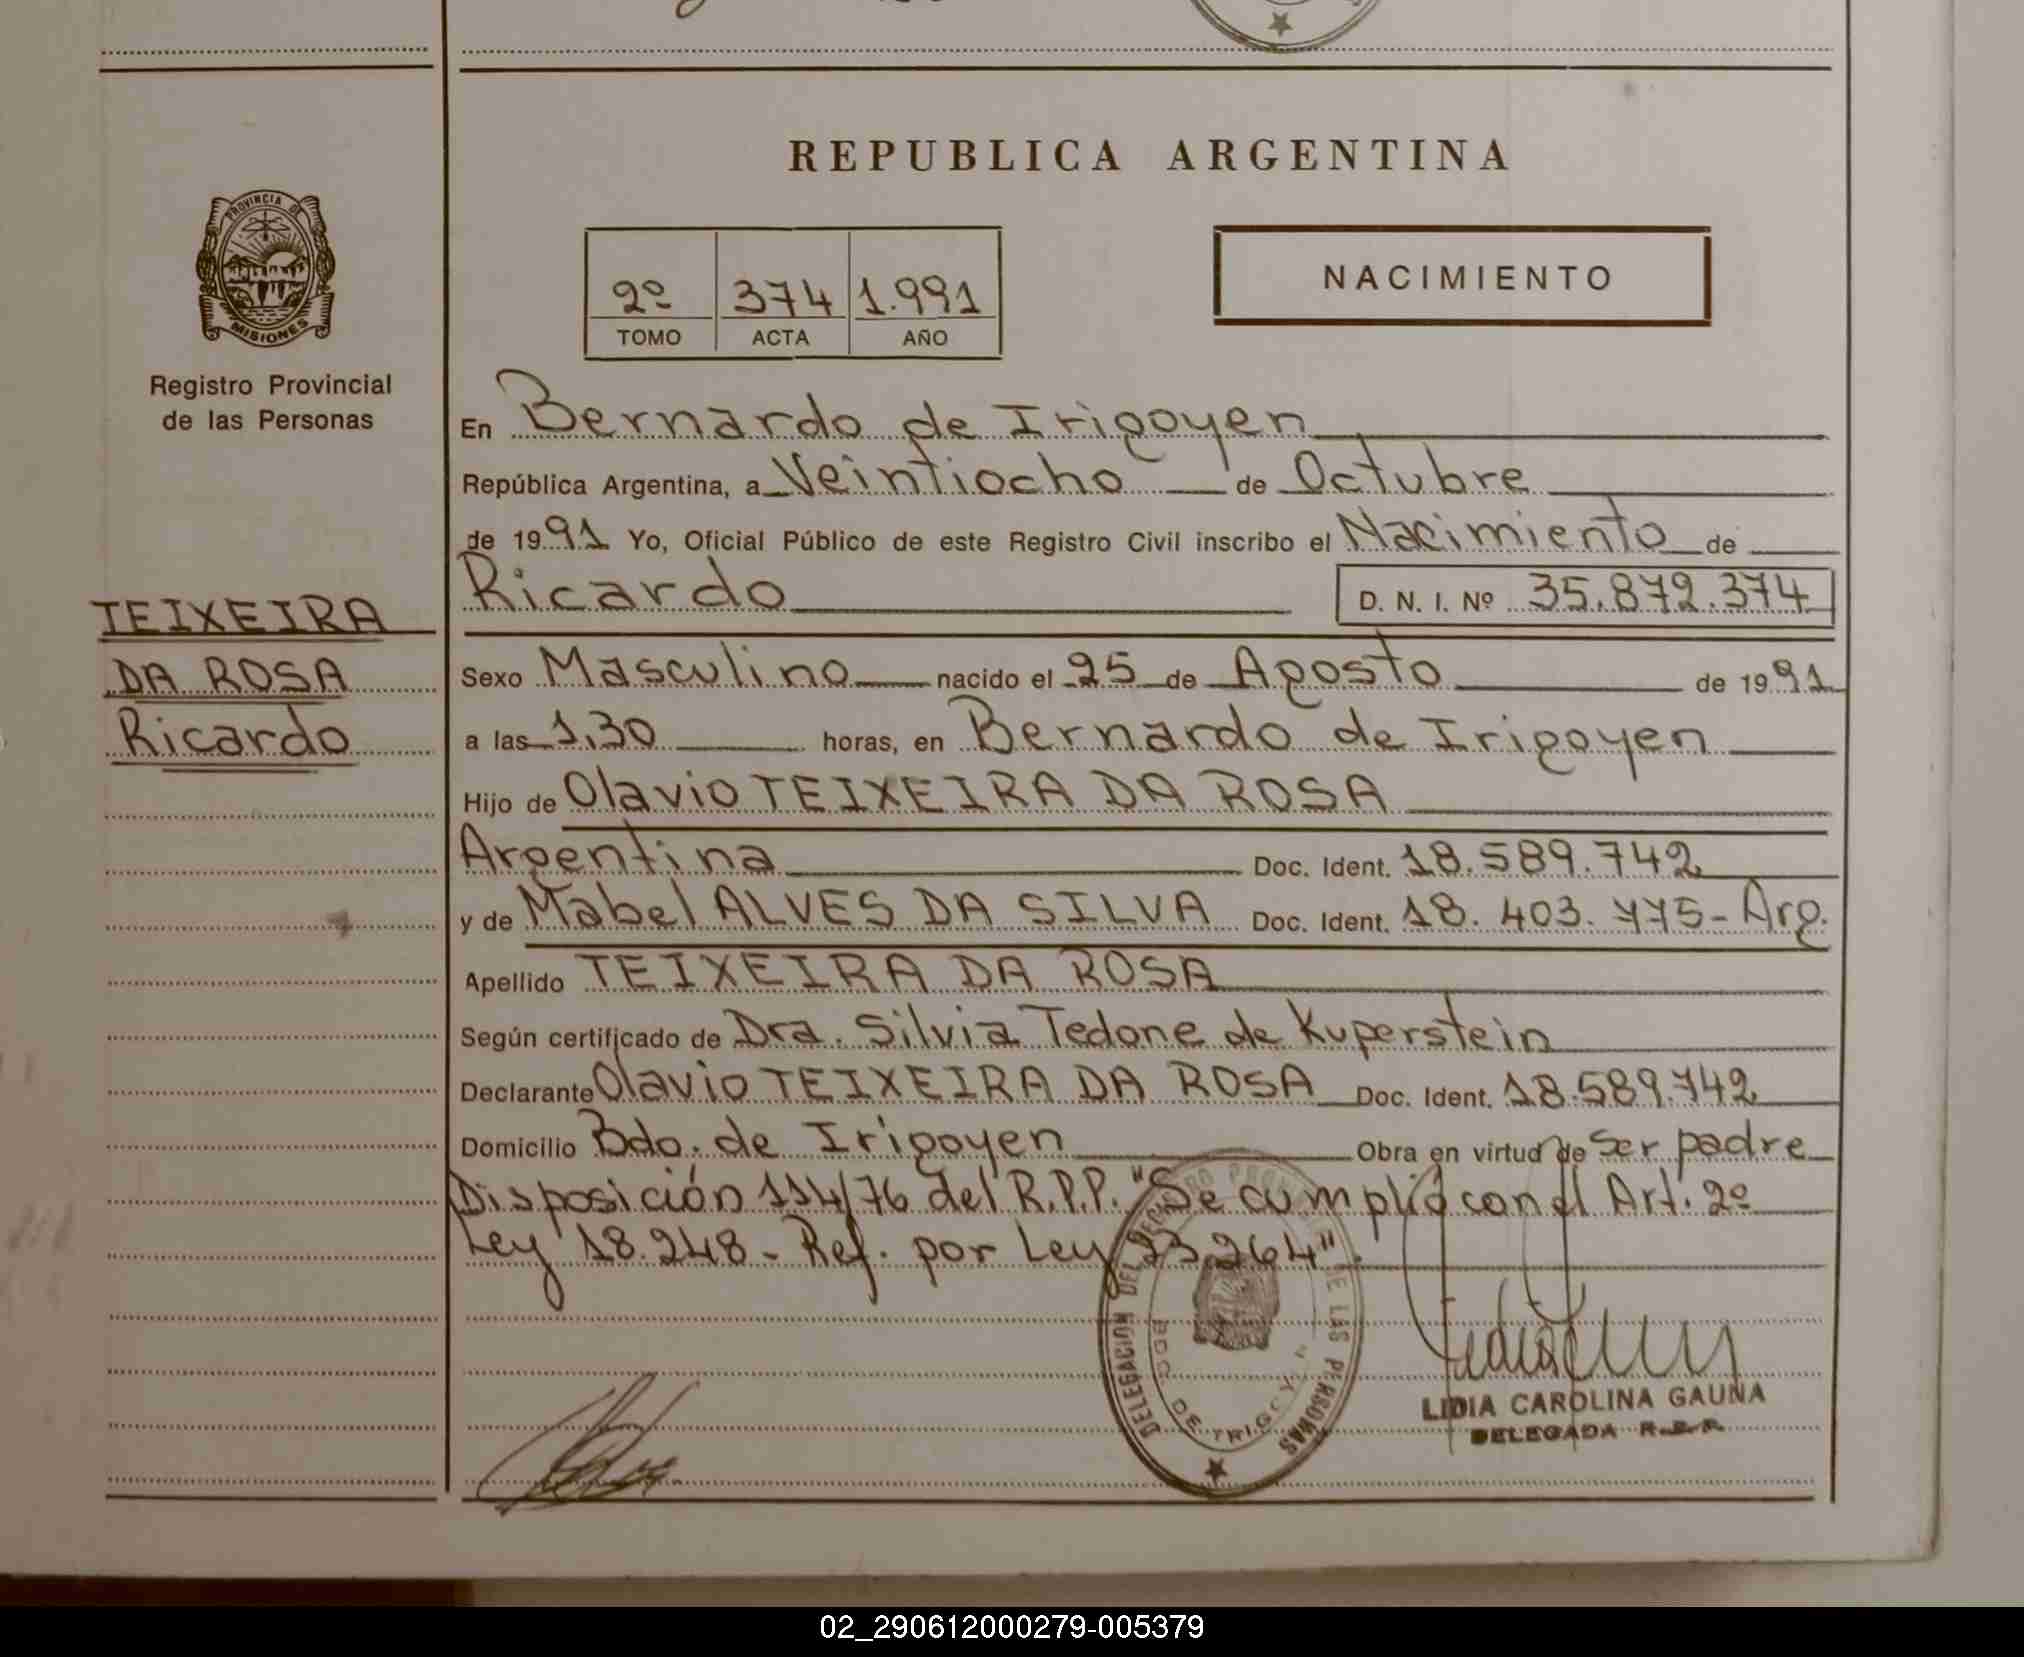 REPUBLICA ARGENTINA
PROVINCIA DE
MISIONES
Registro Provincial
de las Personas
2º 374 1.991
TOMO ACTA AÑO
NACIMIENTO
TEIXEIRA
DA ROSA
Ricardo
En Bernardo de Irigoyen
República Argentina, a Veintiocho de Octubre
de 1991 Yo, Oficial Público de este Registro Civil inscribo el Nacimiento de
Ricardo D. N. I. Nº 35.872.374
Sexo Masculino nacido el 25 de Agosto de 1991
a las 1,30 horas, en Bernardo de Irigoyen
Hijo de Olavio TEIXEIRA DA ROSA
Argentina Doc. Ident. 18.589.742
y de Mabel ALVES DA SILVA Doc. Ident. 18.403.775- Arg.
Apellido TEIXEIRA DA ROSA
Según certificado de Dra. Silvia Tedone de Kuperstein
Declarante Olavio TEIXEIRA DA ROSA Doc. Ident. 18.589.742
Domicilio Bdo. de Irigoyen Obra en virtud de Ser padre
Disposición 114/76 del R.P.P. "Se cumplió con el Art. 2º
Ley 18.248 - Ref. por Ley 23.264".
DELEGACION DEL REGISTRO PROVINCIAL DE LAS PERSONAS
BDO. DE IRIGOYEN
LIDIA CAROLINA GAUNA
DELEGADA R.P.P.
02_290612000279-005379